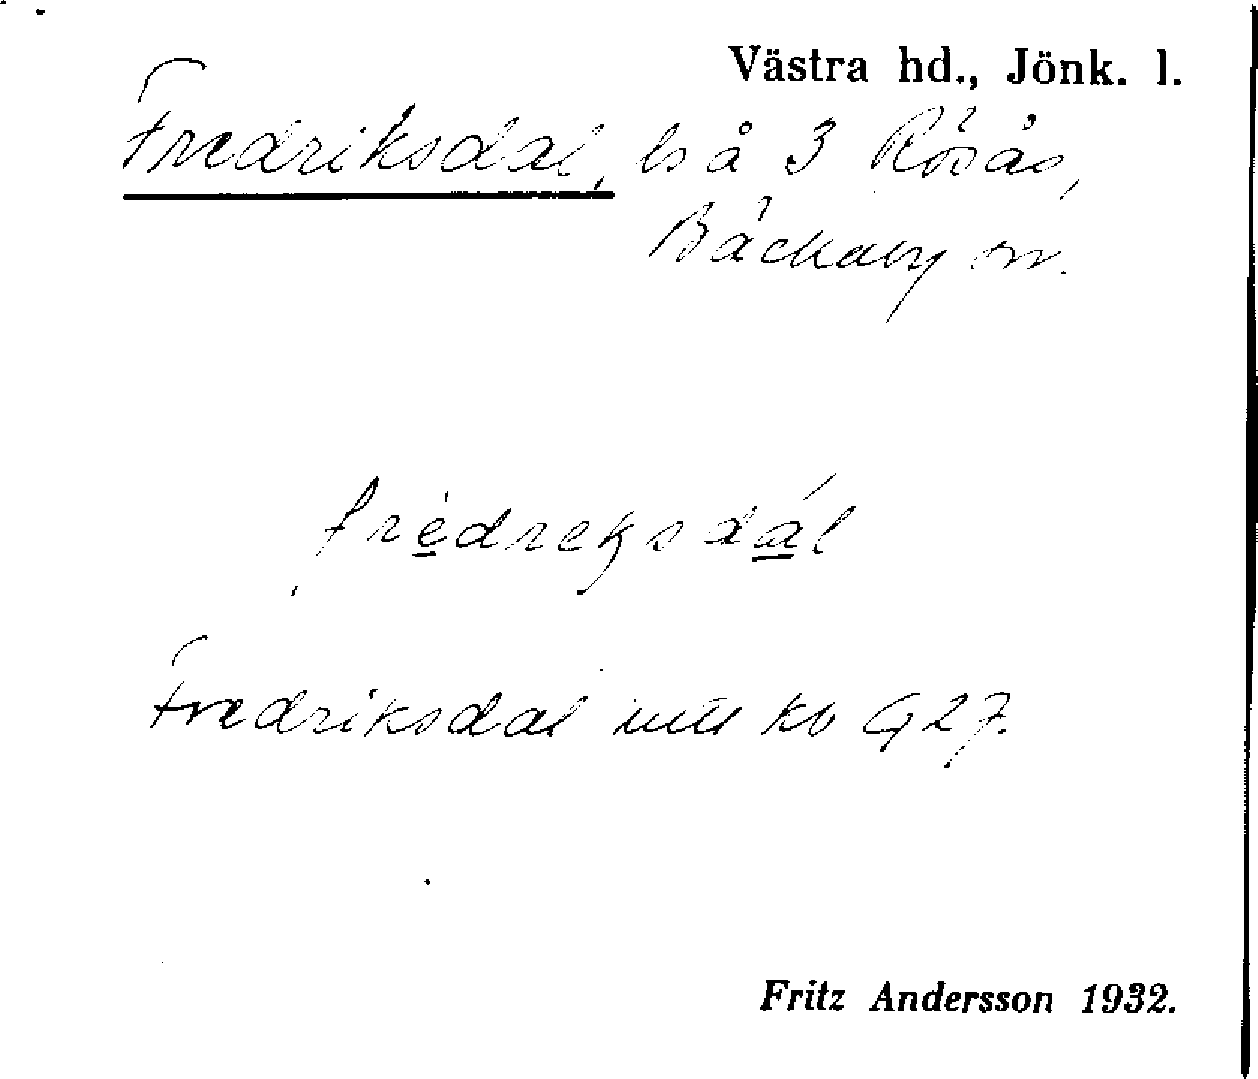 Västra hd., Jönk. l.
Fredriksdal, ls å 3 Rösås,
Bäckaby sn.
frèdreksdál
Fredriksdal kb G27.
Fritz Andersson 1932.